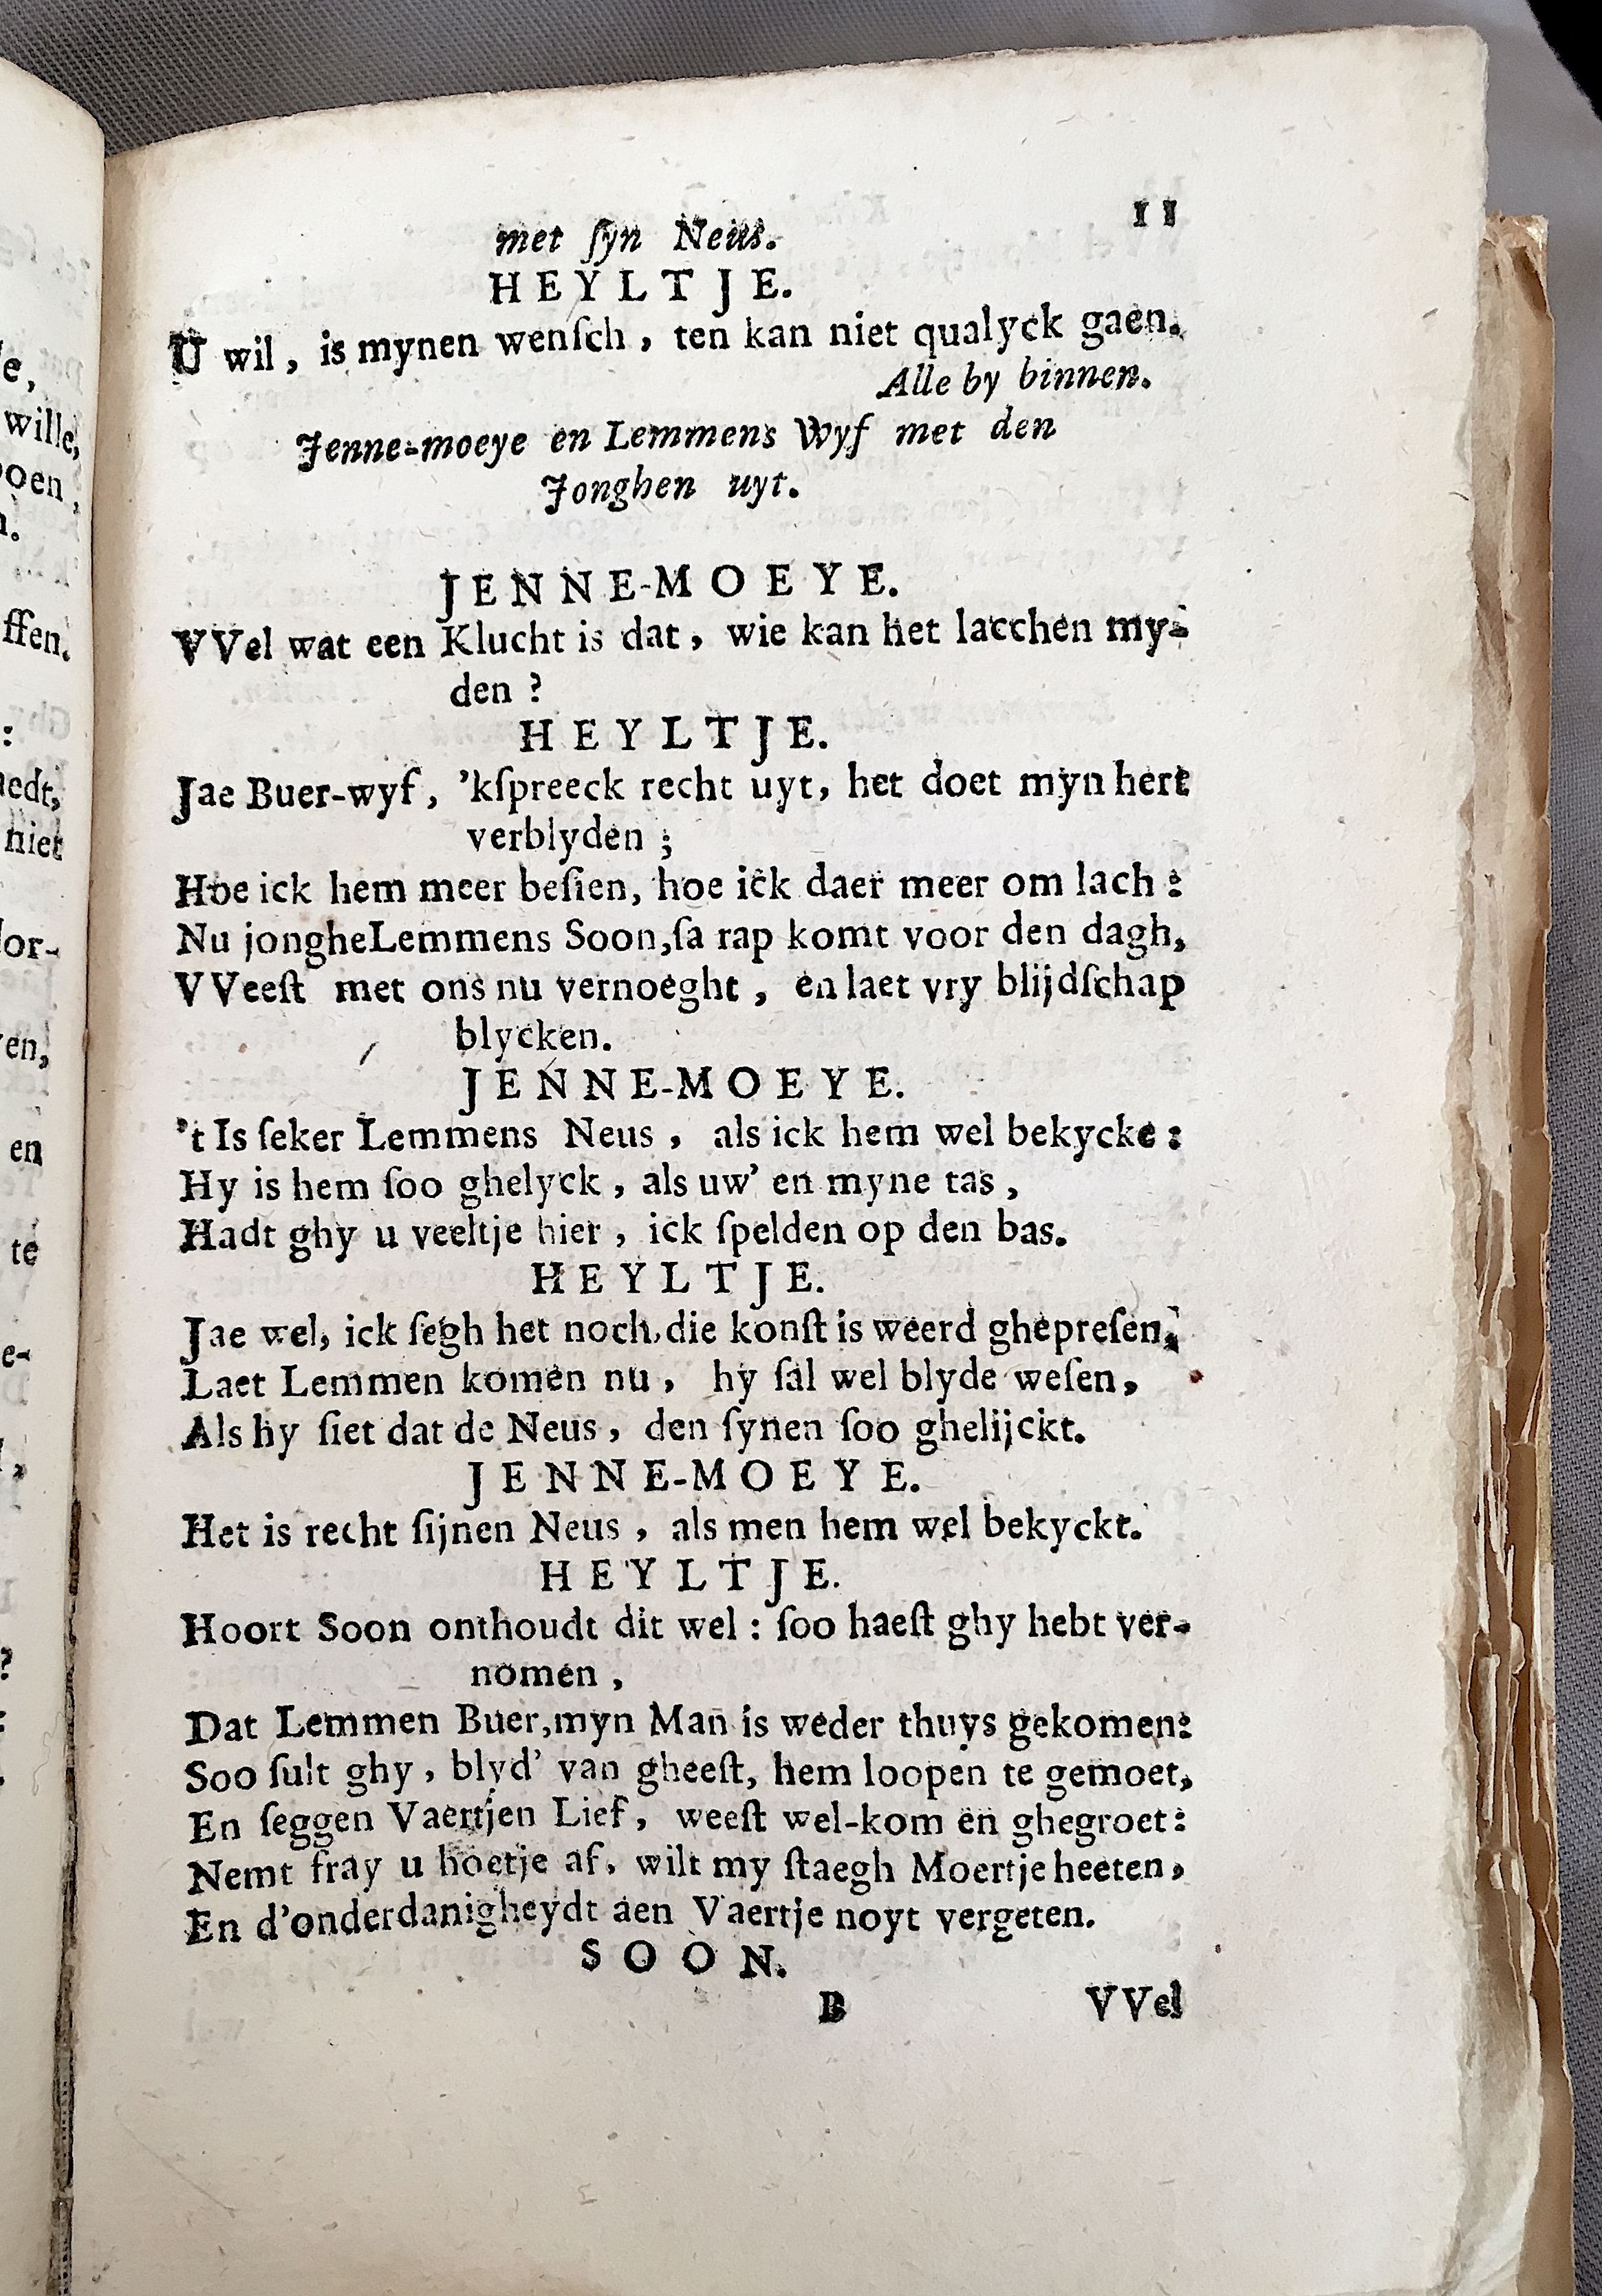 met ſyn Neus.
11
HEYLTJE.
U wil, is mynen wenſch, ten kan niet qualyck gaen.
Alle by binnen.
Jenne-moeye en Lemmens Wyf met den
Jonghen uyt.
JENNE-MOEYE.
VVel wat een Klucht is dat, wie kan het lacchen my-
den?
HEYLTJE.
Jae Buer-wyf, 'kſpreeck recht uyt, het doet myn hert
verblyden;
Hoe ick hem meer beſien, hoe ick daer meer om lach:
Nu jongheLemmens Soon,ſa rap komt voor den dagh,
VVeeſt met ons nu vernoeght, en laet vry blijdſchap
blycken.
JENNE-MOEYE.
't Is ſeker Lemmens Neus, als ick hem wel bekycke:
Hy is hem ſoo ghelyck, als uw' en myne tas,
Hadt ghy u veeltje hier, ick ſpelden op den bas.
HEYLTJE.
Jae wel, ick ſegh het noch, die konſt is weerd ghepreſen,
Laet Lemmen komen nu, hy ſal wel blyde weſen,
Als hy ſiet dat de Neus, den ſynen ſoo ghelijckt.
JENNE-MOEYE.
Het is recht ſijnen Neus, als men hem wel bekyckt.
HEYLTJE.
Hoort Soon onthoudt dit wel: ſoo haeſt ghy hebt ver-
nomen,
Dat Lemmen Buer,myn Man is weder thuys gekomen:
Soo ſult ghy, blyd' van gheeſt, hem loopen te gemoet,
En ſeggen Vaertjen Lief, weeſt wel-kom en ghegroet:
Nemt fray u hoetje af, wilt my ſtaegh Moertje heeten,
En d'onderdanigheydt aen Vaertje noyt vergeten.
SOON.
B
VVel
e,
wille,
oen,
n.
ffen.
:
aedt,
niet
or-
en,
en
te
e-
,
?
: